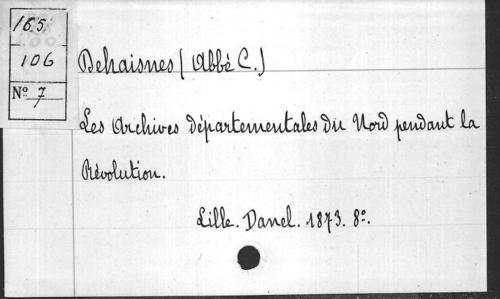 165
106
Nº 7
Dehaisnes (Abbé C.)
Les Archives départementales du Nord pendant la
Révolution.
Lille. Danel. 1873. 8º.